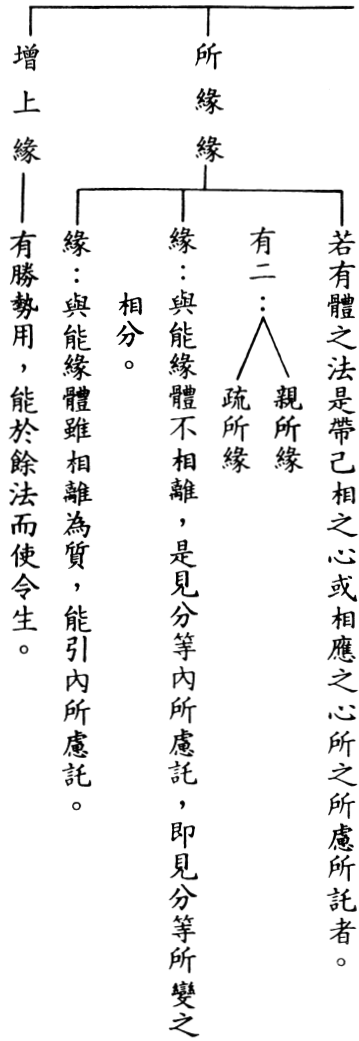 所緣緣
若有體之法是帶己相之心或相應之心所之所慮所託者。
有二：
親所緣
疏所緣
緣：與能緣體不相離，是見分等內所慮託，即見分等所變之
相分。
緣：與能緣體雖相離為質，能引內所慮託。
增上緣
有勝勢用，能於餘法而使令生。